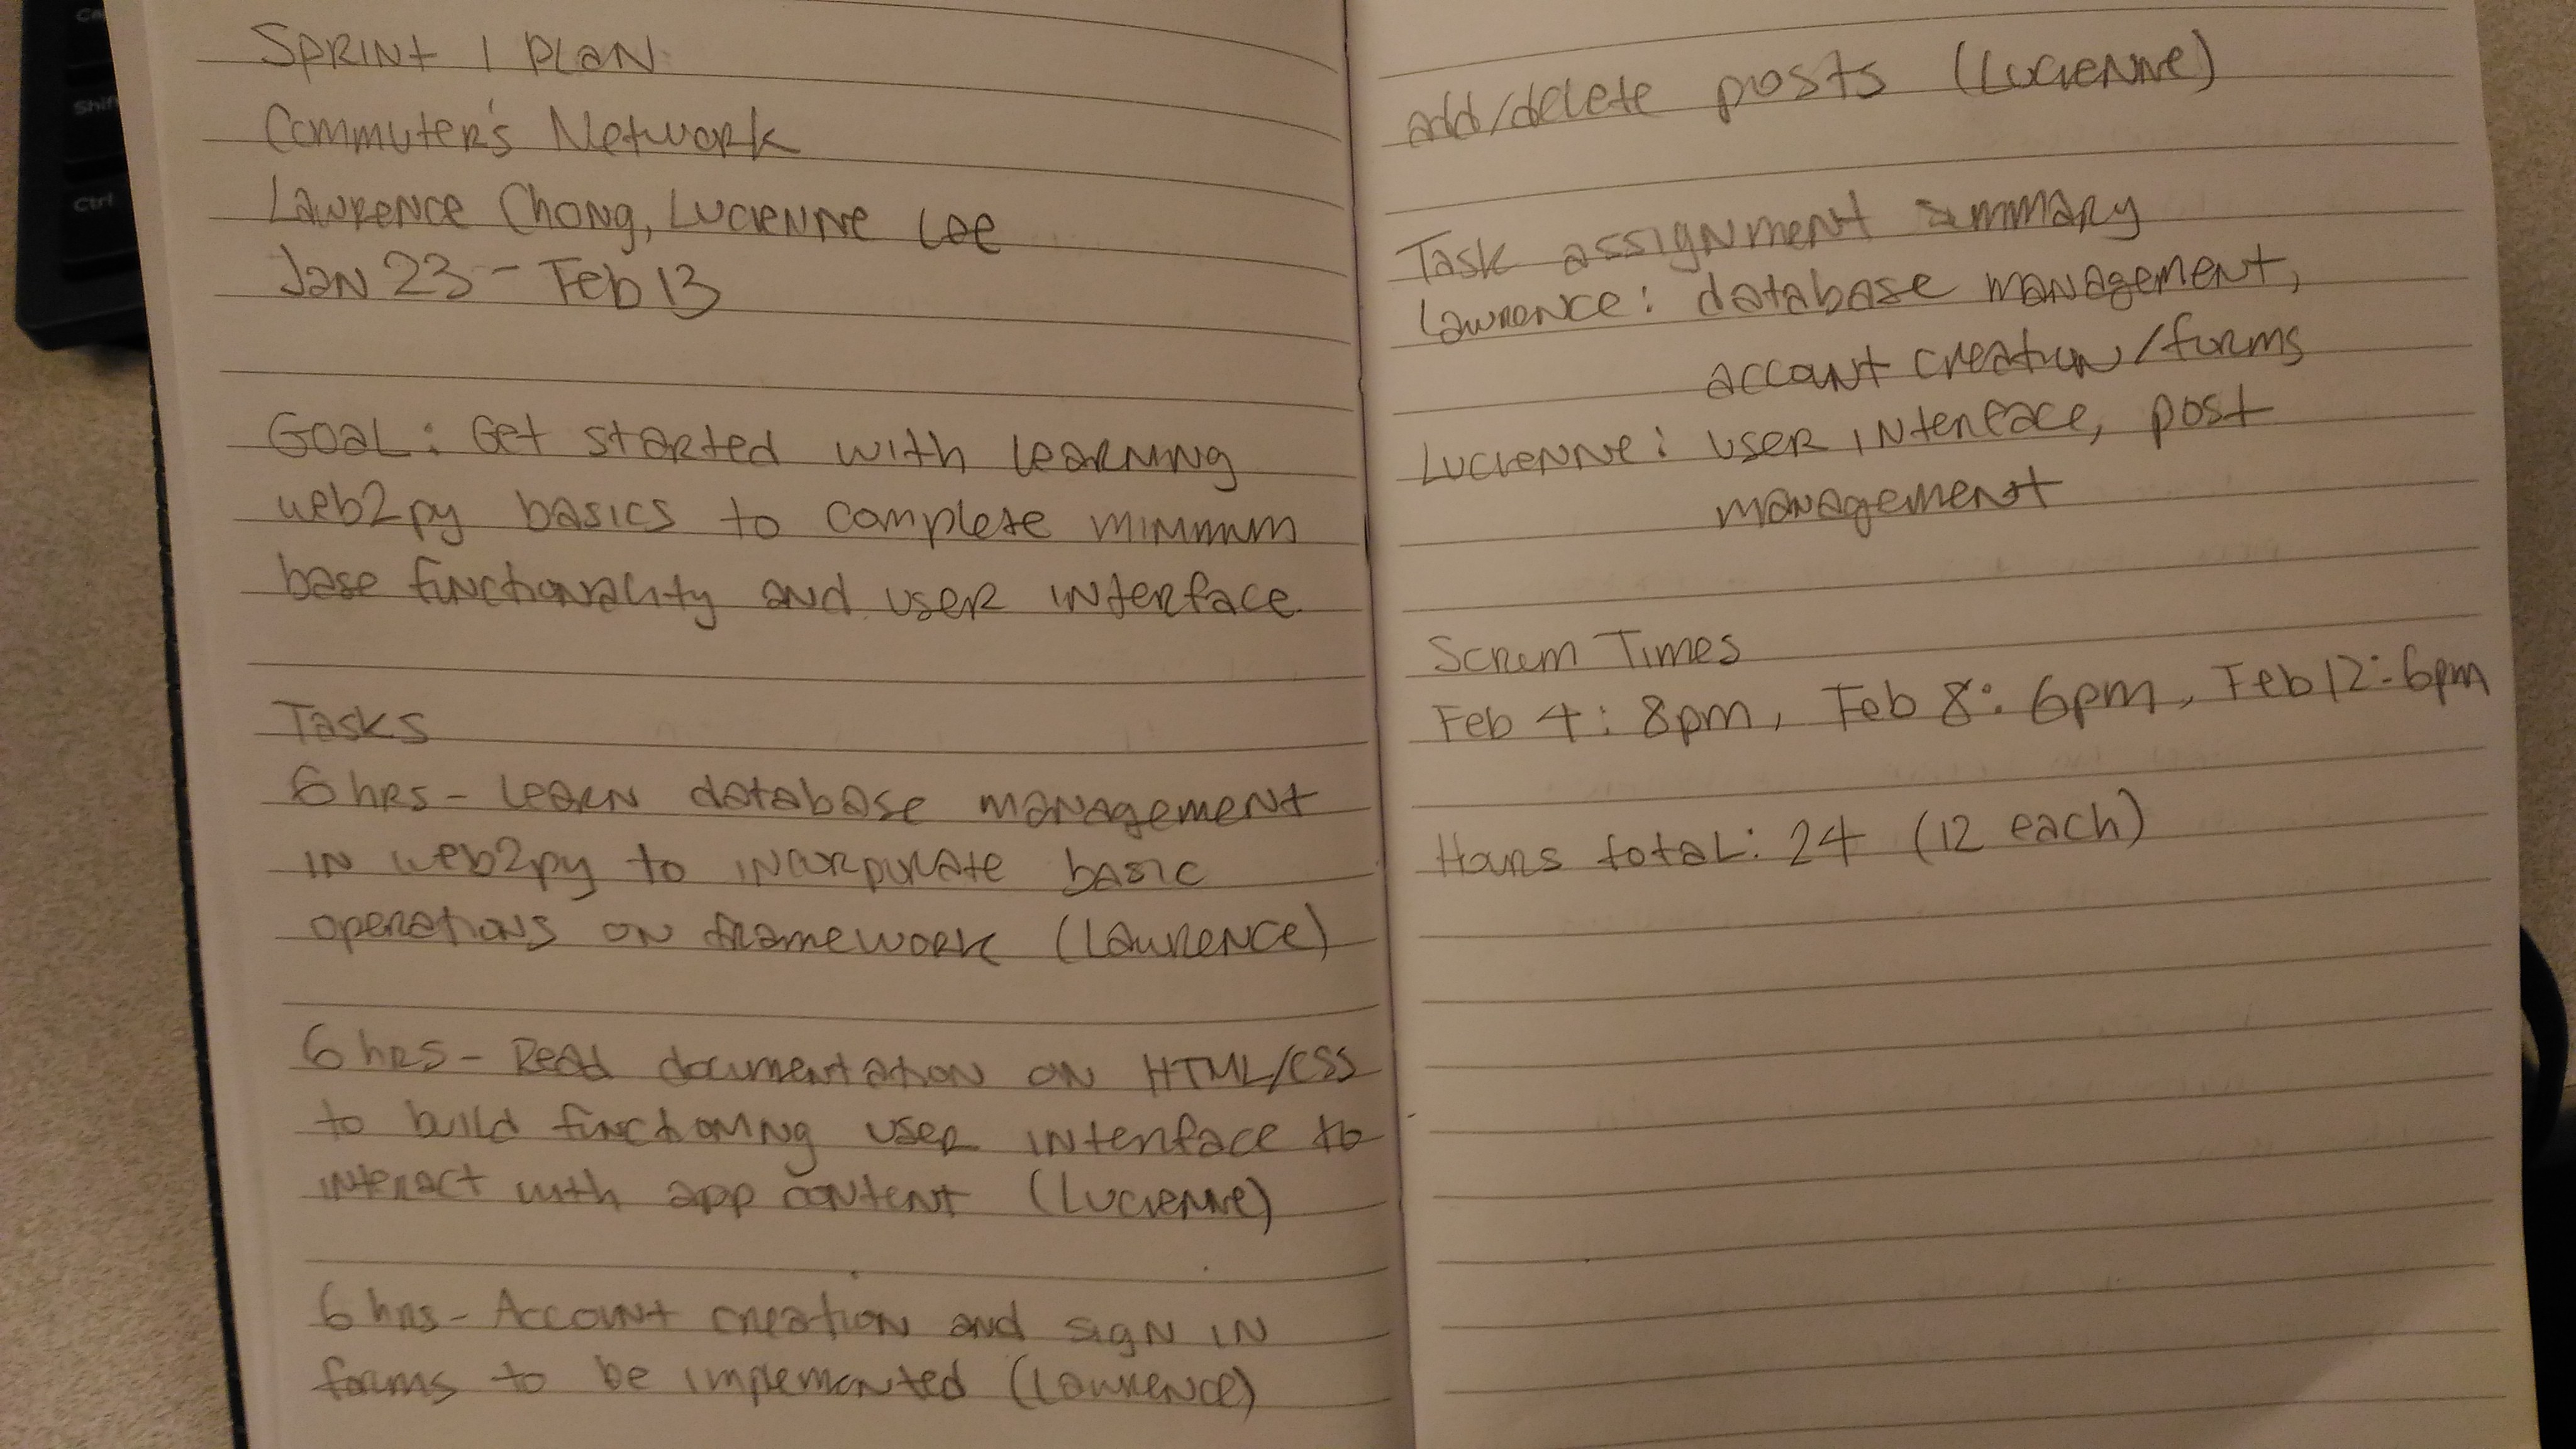 Sprint 1 Plan
Commuter's Network
Lawrence Chong, Lucienne Lee
Jan 23 - Feb 13
Goal: Get started with learning
web2py basics to complete minimum
base functionality and user interface
Tasks
6 hrs - Learn database management
in web2py to incorporate basic
operations on framework (Lawrence)
6 hrs - Read documentation on HTML/CSS
to build functioning user interface to
interact with app content (Lucienne)
6 hrs - Account creation and sign in
forms to be implemented (Lawrence)
add/delete posts (Lucienne)
Task assignment summary
Lawrence: database management,
account creation/forms
Lucienne: user interface, post
management
Scrum Times
Feb 4: 8pm, Feb 8: 6pm, Feb 12: 6pm
Hours total: 24 (12 each)
Shift
Ctrl